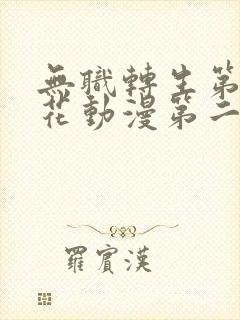 無職轉生第
花動漫第二
羅賓漢